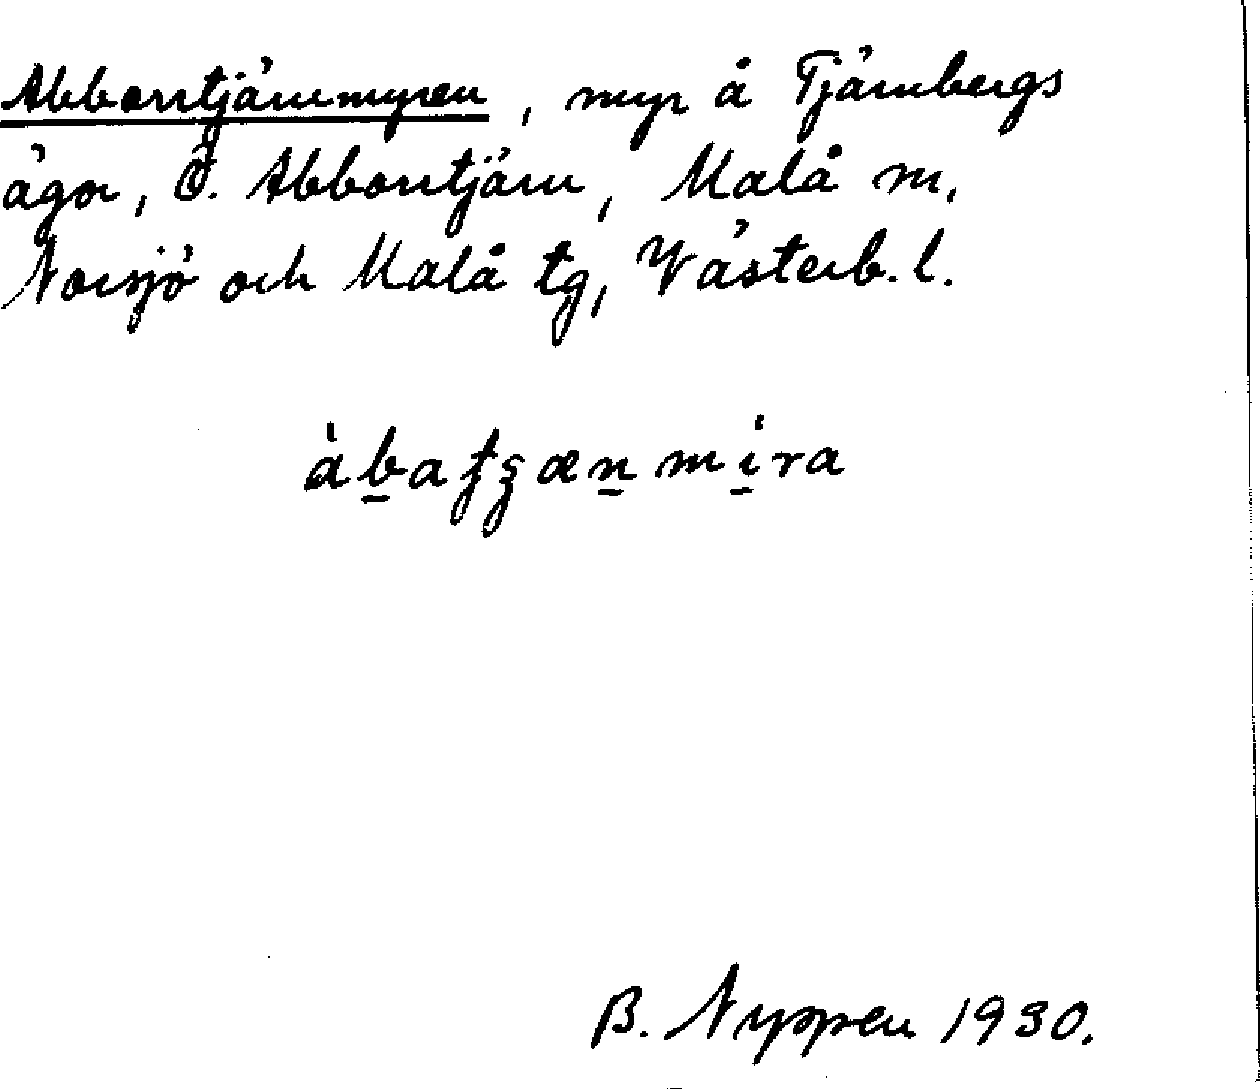 Abborrtjärnmyren, myr å Tjärnbergs
ägor, Ö. Abborrtjärn, Malå sn,
Norsjö och Malå tg, Västerb. l.
àb̲aʄʒæn̲mí̲ra
B. Nyppen 1930.